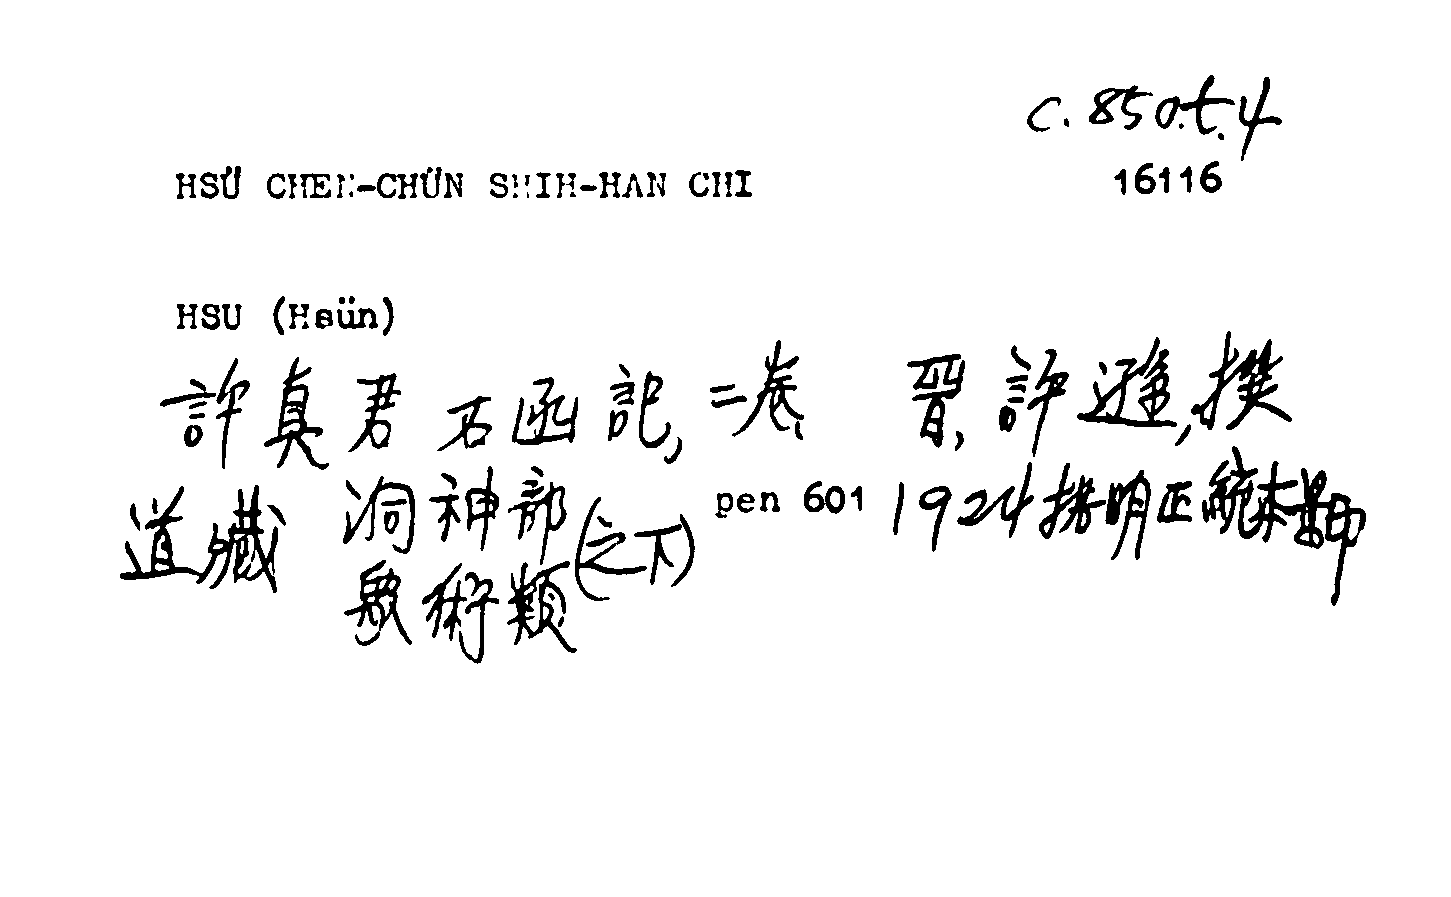 c.850.t.4
HSÜ CHEN-CHÜN SHIH-HAN CHI 16116
HSU (Hsün)
許真君石函記, 二卷, 晉, 許遜, 撰
道藏 洞神部 (之下) pen 601 1924 據明正統本景印
眾術類